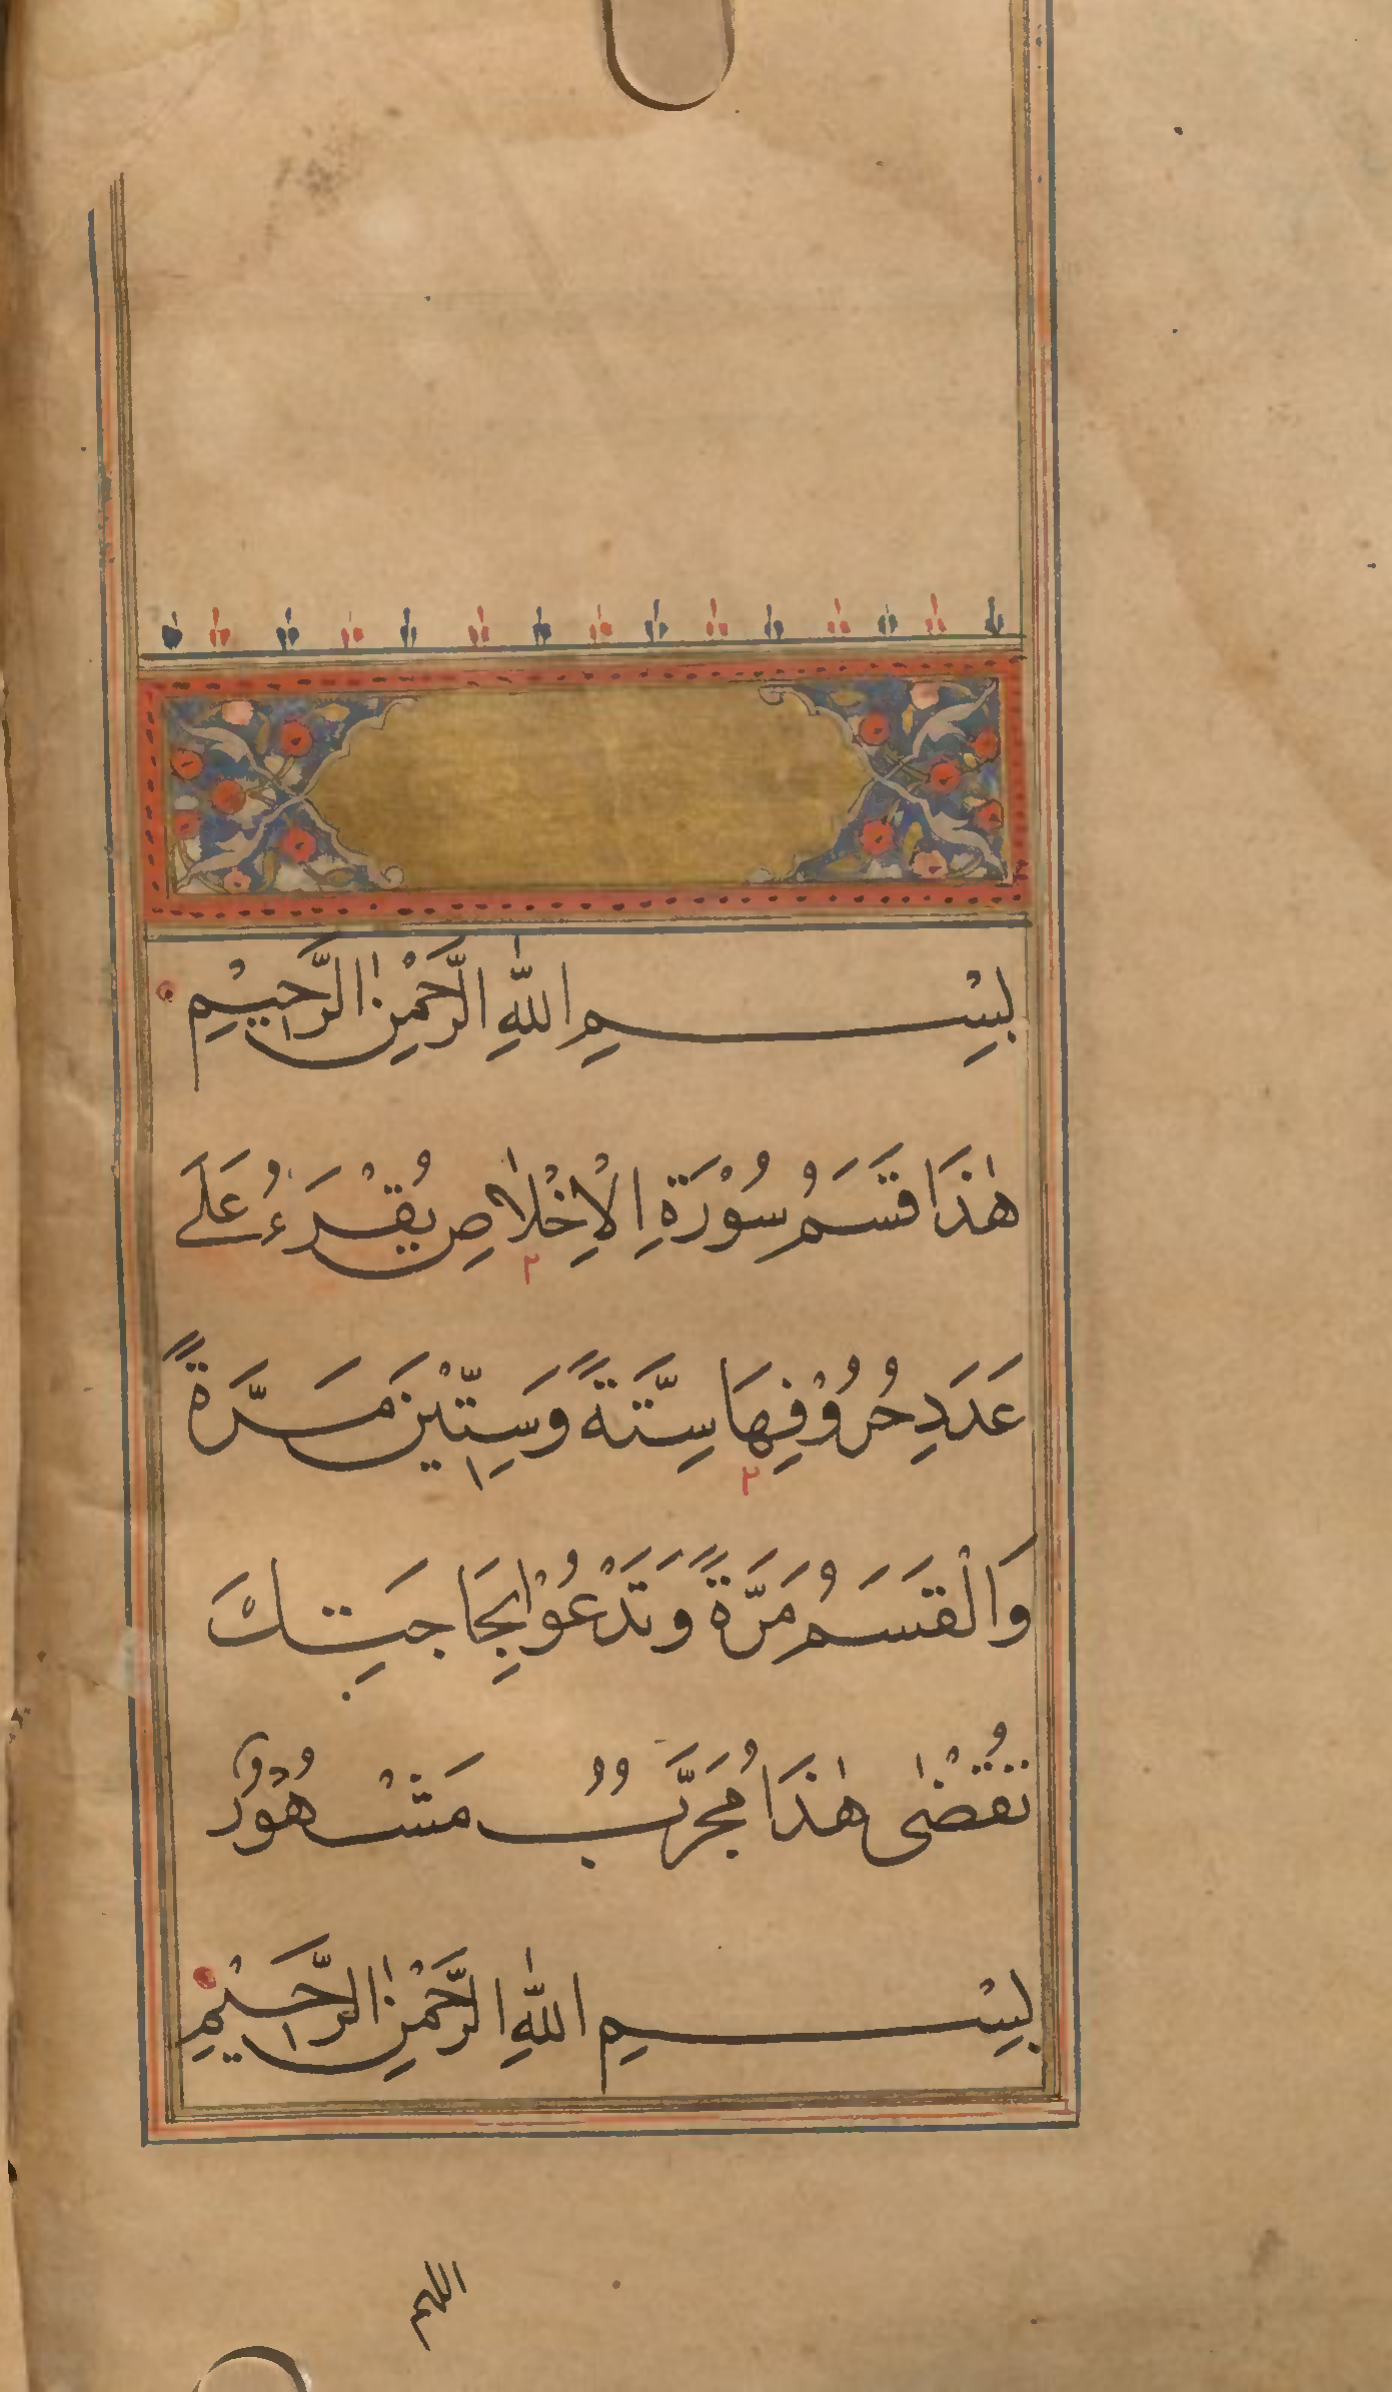 بِسْمِ اللّٰهِ الرَّحْمٰنِ الرَّحِيْمِ
هٰذَا قَسَمُ سُوْرَةِ الْاِخْلَاصِ يُقْرَءُ عَلَے
عَدَدِ حُرُوْفِهَا سِتَّةً وَسِتِّيْنَ مَرَّةً
وَالْقَسَمُ مَرَّةً وَتَدْعُوْا بِحَاجَتِكَ
تُقْضٰى هٰذَا مُجَرَّبٌ مَشْهُوْرٌ
بِسْمِ اللّٰهِ الرَّحْمٰنِ الرَّحِيْمِ
اللهم